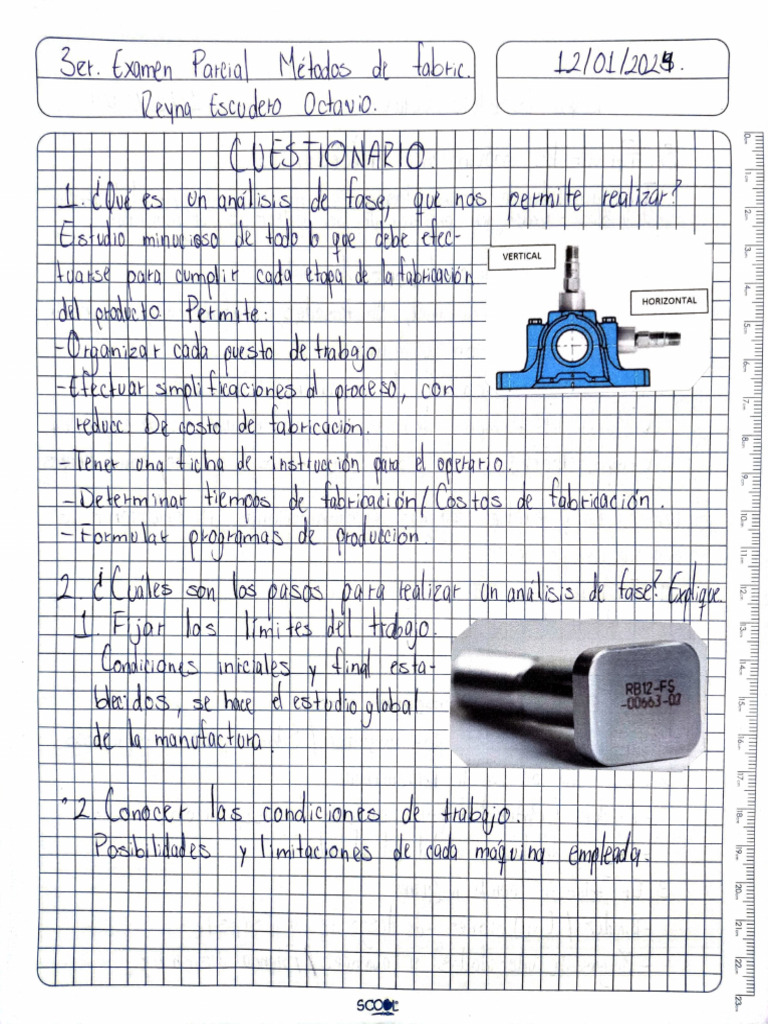 3er. Examen Parcial Métodos de fabric.
Reyna Escudero Octavio.
12/01/2024.
CUESTIONARIO.
1. ¿Qué es un análisis de fase, que nos permite realizar?
Estudio minucioso de todo lo que debe efec-
tuarse para cumplir cada etapa de la fabricación
del producto. Permite:
-Organizar cada puesto de trabajo
-Efectuar simplificaciones d proceso, con
reducc. De costo de fabricación.
-Tener una ficha de instrucción para el operario.
-Determinar tiempos de fabricación/Costos de fabricación.
-Formular programas de producción.
VERTICAL
HORIZONTAL
2. ¿Cuáles son los pasos para realizar un análisis de fase? Explique.
1. Fijar los límites del trabajo.
Condiciones iniciales y final esta-
blecidos, se hace el estudio global
de la manufactura.
RB12-FS
-00663-07
2. Conocer las condiciones de trabajo.
Posibilidades y limitaciones de cada máquina empleada.
SCOOL
0cm
1cm
2cm
3cm
4cm
5cm
6cm
7cm
8cm
9cm
10cm
11cm
12cm
13cm
14cm
15cm
16cm
17cm
18cm
19cm
20cm
21cm
22cm
23cm